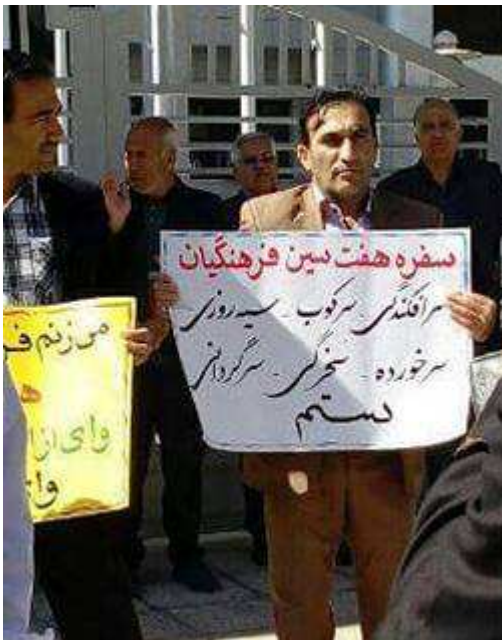 سفره هفت سین فرهنگیان
سرافکندگی - سرکوب - سیه روزی -
سرخورده - سخرگی - سرگردانی
ستم
می زنم فر
وای از
وا